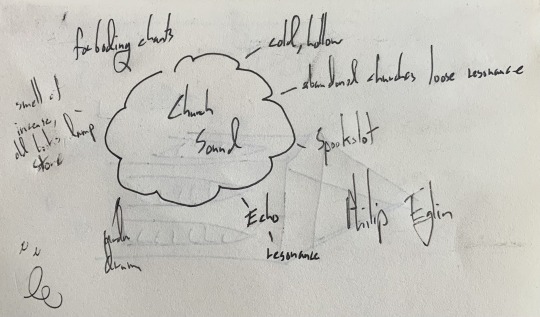 forboding chants
cold, hollow
abandoned churches loose resonance
smell of
incense,
damp
store
Church
Sound
Spookslot
Echo
resonance
Philip Eglin
drum